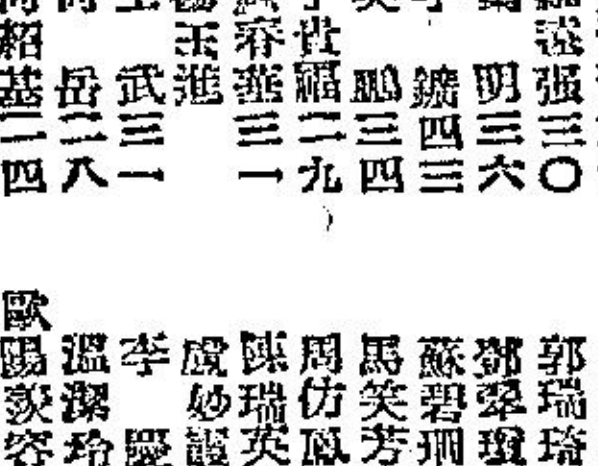 强三〇
明三六
四三
鵬三四
貴福二九
容華三一
楊玉進
武三一
岳二八
紹基二四
郭瑞琦
鄧翠瓊
蘇碧珊
馬笑芳
周仿鳳
陳瑞英
盧妙
李慶
溫潔玲
歐陽羨容